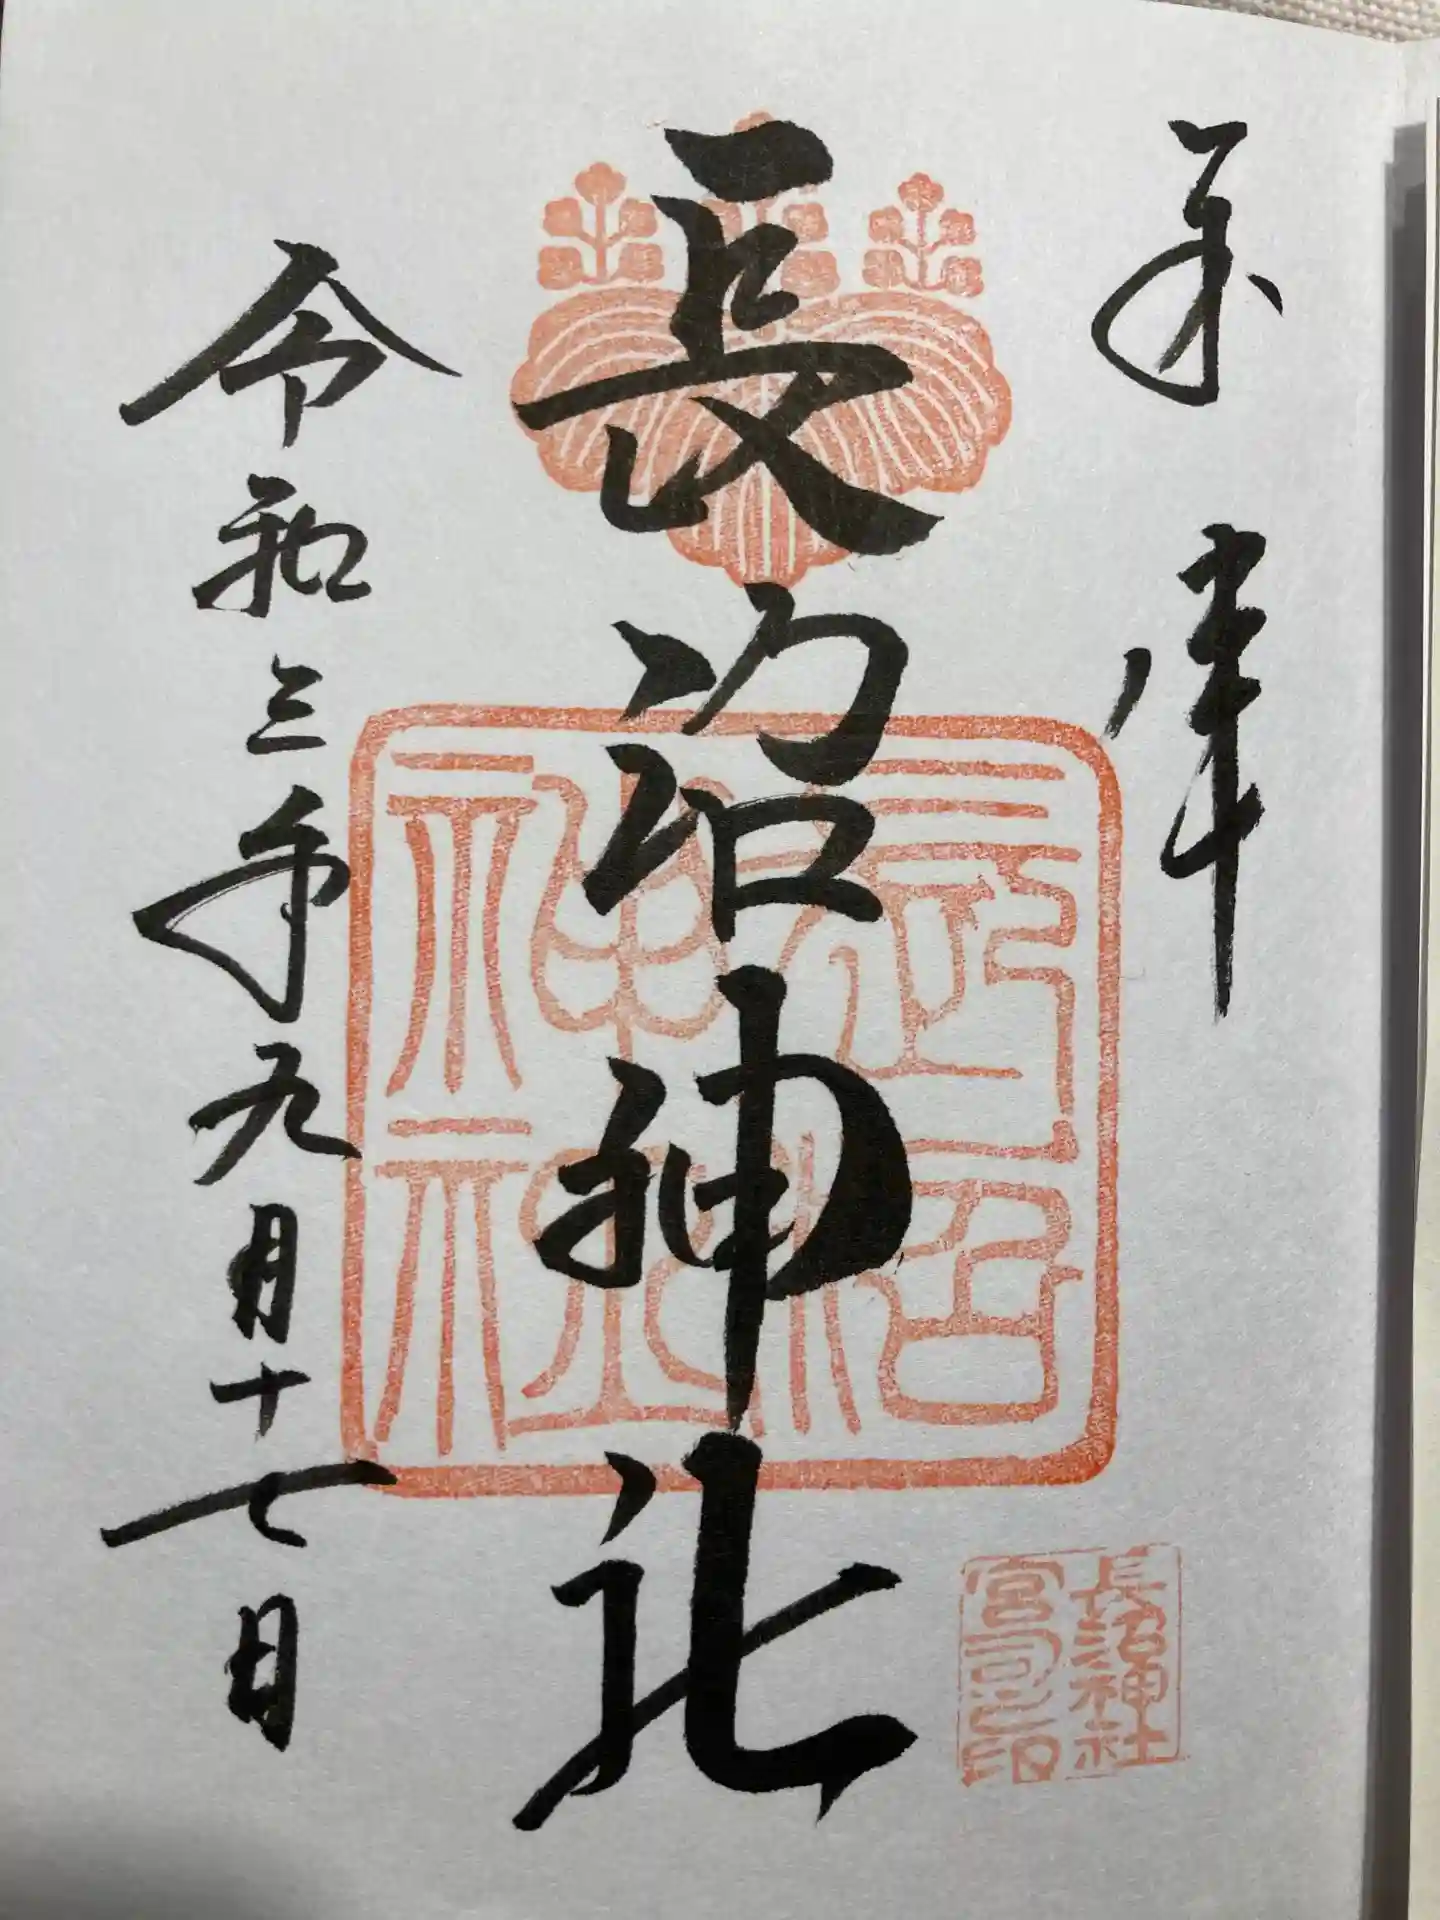 奉拝
長沼神社
令和三年九月十七日
長沼神社
長沼神社
宮司之印